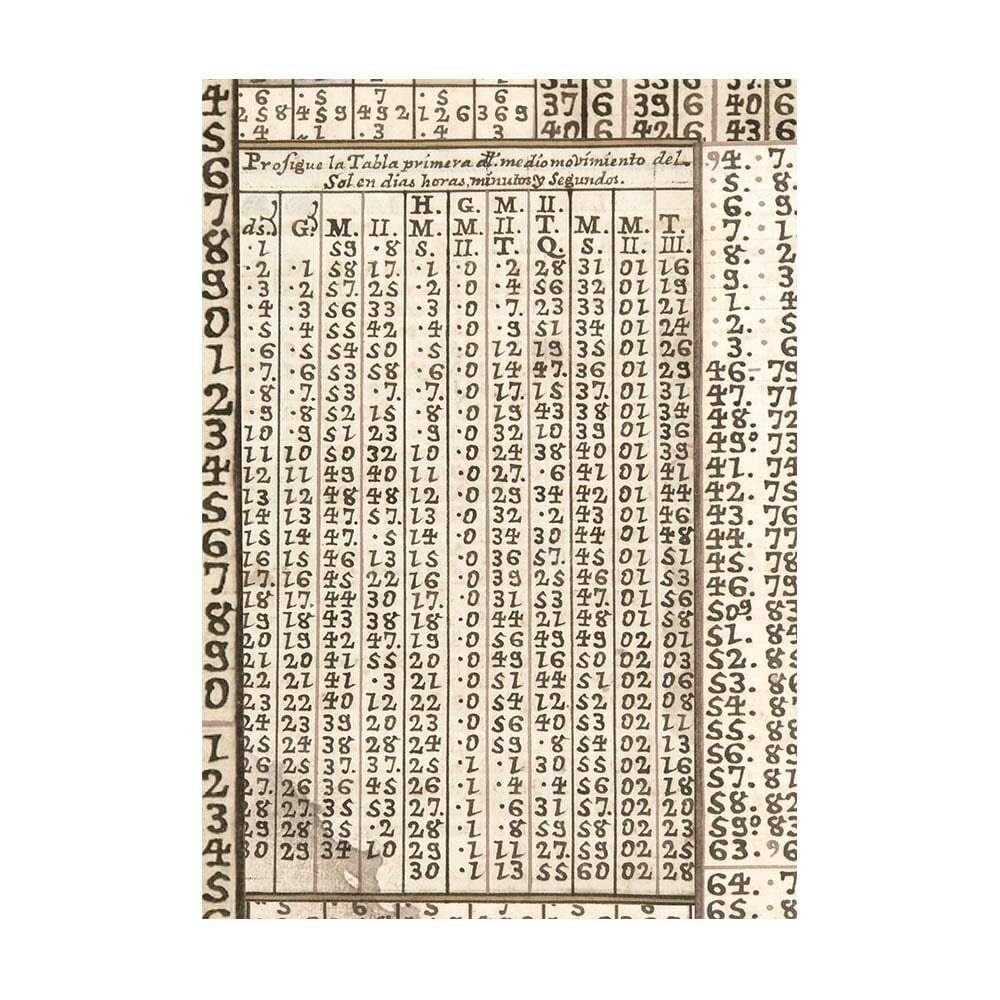 .6 .5 7 .5 6
258 459 492 126 369
.4 .1 .3 .4 3
37 6 39 6 40 6
40 6 42 6 43 6
4
5
6
7
8
9
0
1
2
3
4
5
6
7
8
9
0
1
2
3
4
5
Prosigue la Tabla primera dl. medio movimiento del
Sol en dias horas, minutos y Segundos.
H. G. M. II.
ds. G. M. II. M. M. II. T. M. M. T.
.1 59 .8 S. II. T. Q. S. II. III.
.2 .1 58 17. .1 .0 .2 28 31 01 16
.3 .2 57. 25 .2 .0 .4 56 32 01 19
.4 .3 56 33 .3 .0 .7. 23 33 01 21
.5 .4 55 42 .4 .0 .9 51 34 01 24
.6 .5 54 50 .5 .0 12 19 35 01 26
.7. .6 53 58 .6 .0 14 47. 36 01 29
.8 .7. 53 .7. .7. .0 17. 15 37. 01 31
.9 .8 52 15 .8 .0 19 43 38 01 34
10 .9 51 23 .9 .0 32 10 39 01 36
11 10 50 32 10 .0 24 38 40 01 39
12 11 49 40 11 .0 27. .6 41 01 41
13 12 48 48 12 .0 29 34 42 01 44
14 13 47. 57. 13 .0 32 .2 43 01 46
15 14 47. .5 14 .0 34 30 44 01 48
16 15 46 13 15 .0 36 57. 45 01 51
17. 16 45 22 16 .0 39 25 46 01 53
18 17. 44 30 17. .0 31 53 47. 01 56
19 18 43 38 18 .0 44 21 48 01 58
20 19 42 47. 19 .0 56 49 49 02 01
21 20 41 55 20 .0 49 16 50 02 03
22 21 41 .3 21 .0 51 44 51 02 06
23 22 40 12 22 .0 54 12 52 02 08
24 23 39 20 23 .0 56 40 53 02 11
25 24 38 28 24 .0 59 .8 54 02 13
26 25 37. 37. 25 .1 .1 30 55 02 16
27. 26 36 45 26 .1 .4 .4 56 02 18
28 27. 35 53 27. .1 .6 31 57. 02 20
29 28 35 .2 28 .1 .8 59 58 02 23
30 29 34 10 29 .1 11 27. 59 02 25
30 .1 13 55 60 02 28
.94. .7.
5. .8
6. .9
7. .1
8. .2
9. .3
1. .4
2. .5
3. .6
46. 79
47. 71
48. 72
49º 73
41. 74
42. 75
43. 76
44. 77
45. 78
46. 79
50º 83
51. 84
52. 85
53. 86
54. 87
55. 88
56. 89
57. 81
58. 82
59º 83
63. .96
64. .7
65. .8